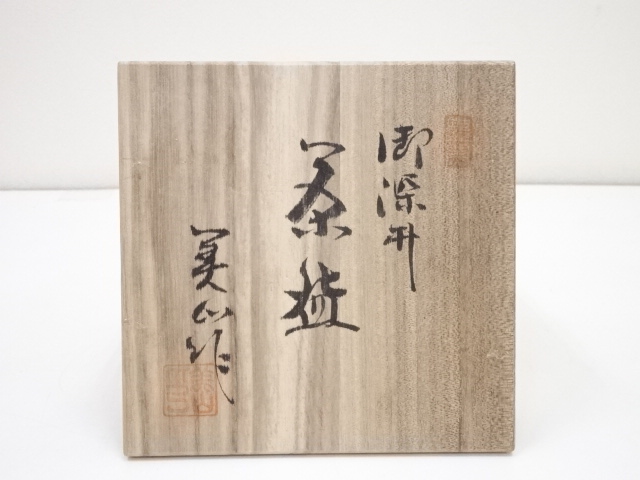 御深井
茶碗
美山作